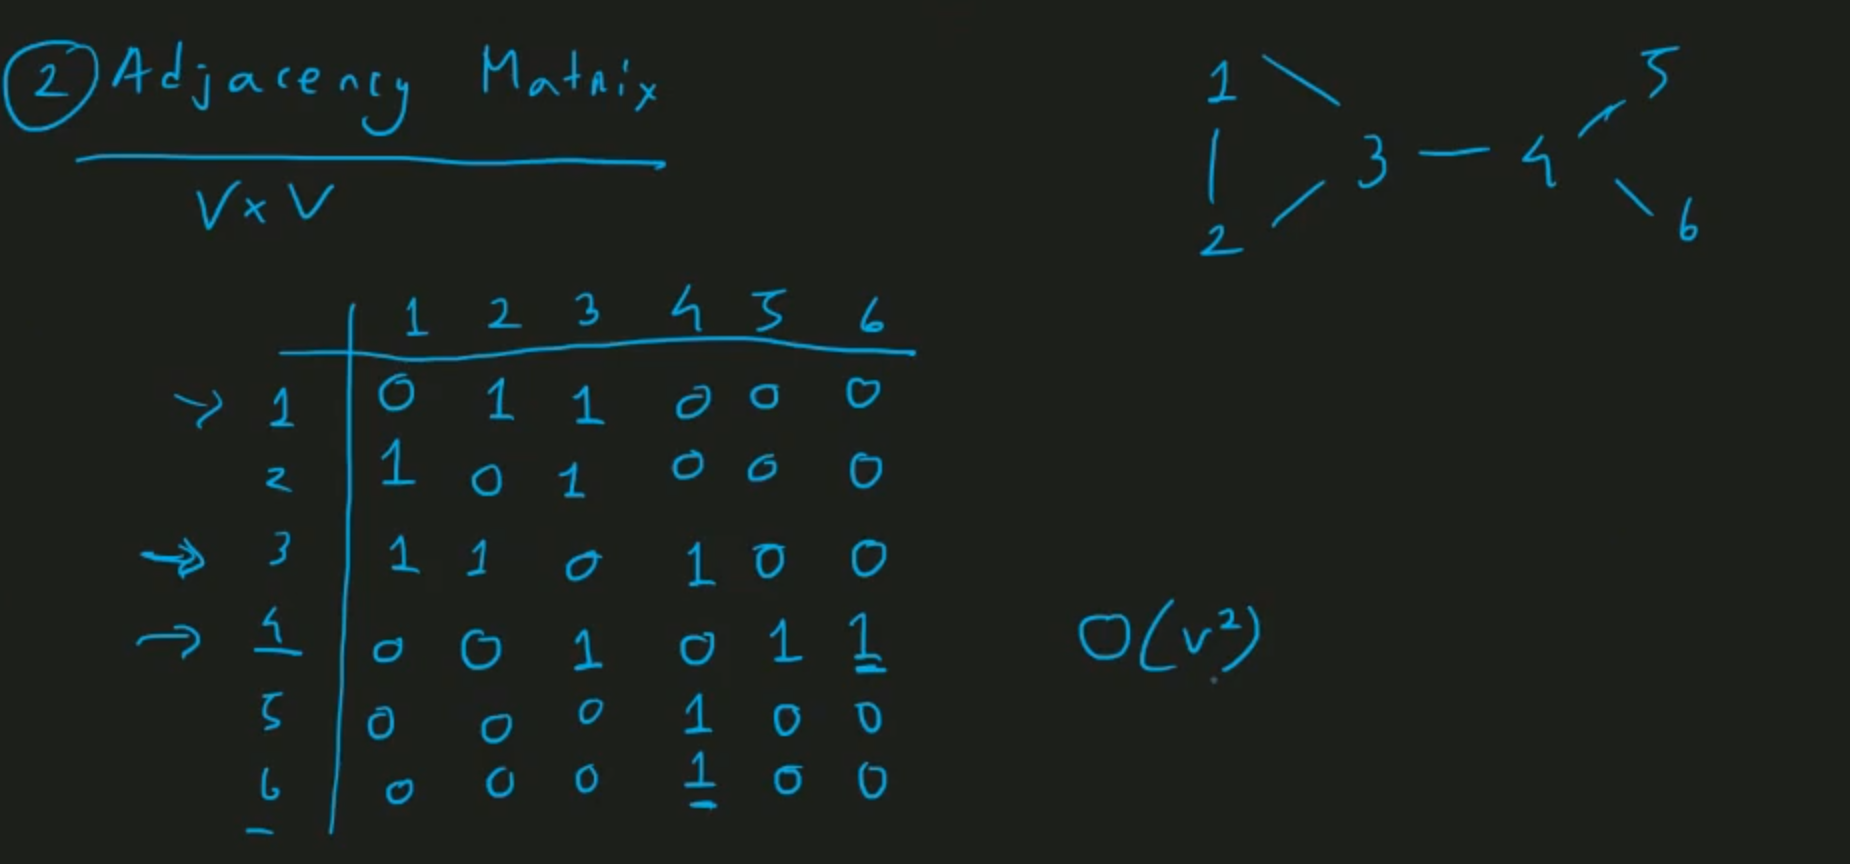 ② Adjacency Matrix
V x V
1 2 3 4 5 6
1 0 1 1 0 0 0
2 1 0 1 0 0 0
3 1 1 0 1 0 0
4 0 0 1 0 1 1
5 0 0 0 1 0 0
6 0 0 0 1 0 0
1 5
3 — 4
2 6
O(v²)